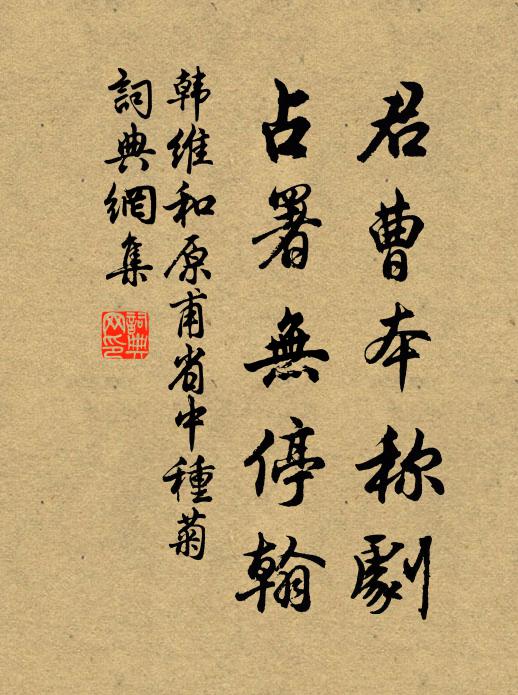 君曹本称劇
占署無停翰
韩维和原甫省中種菊
詞典網集
詞典网印